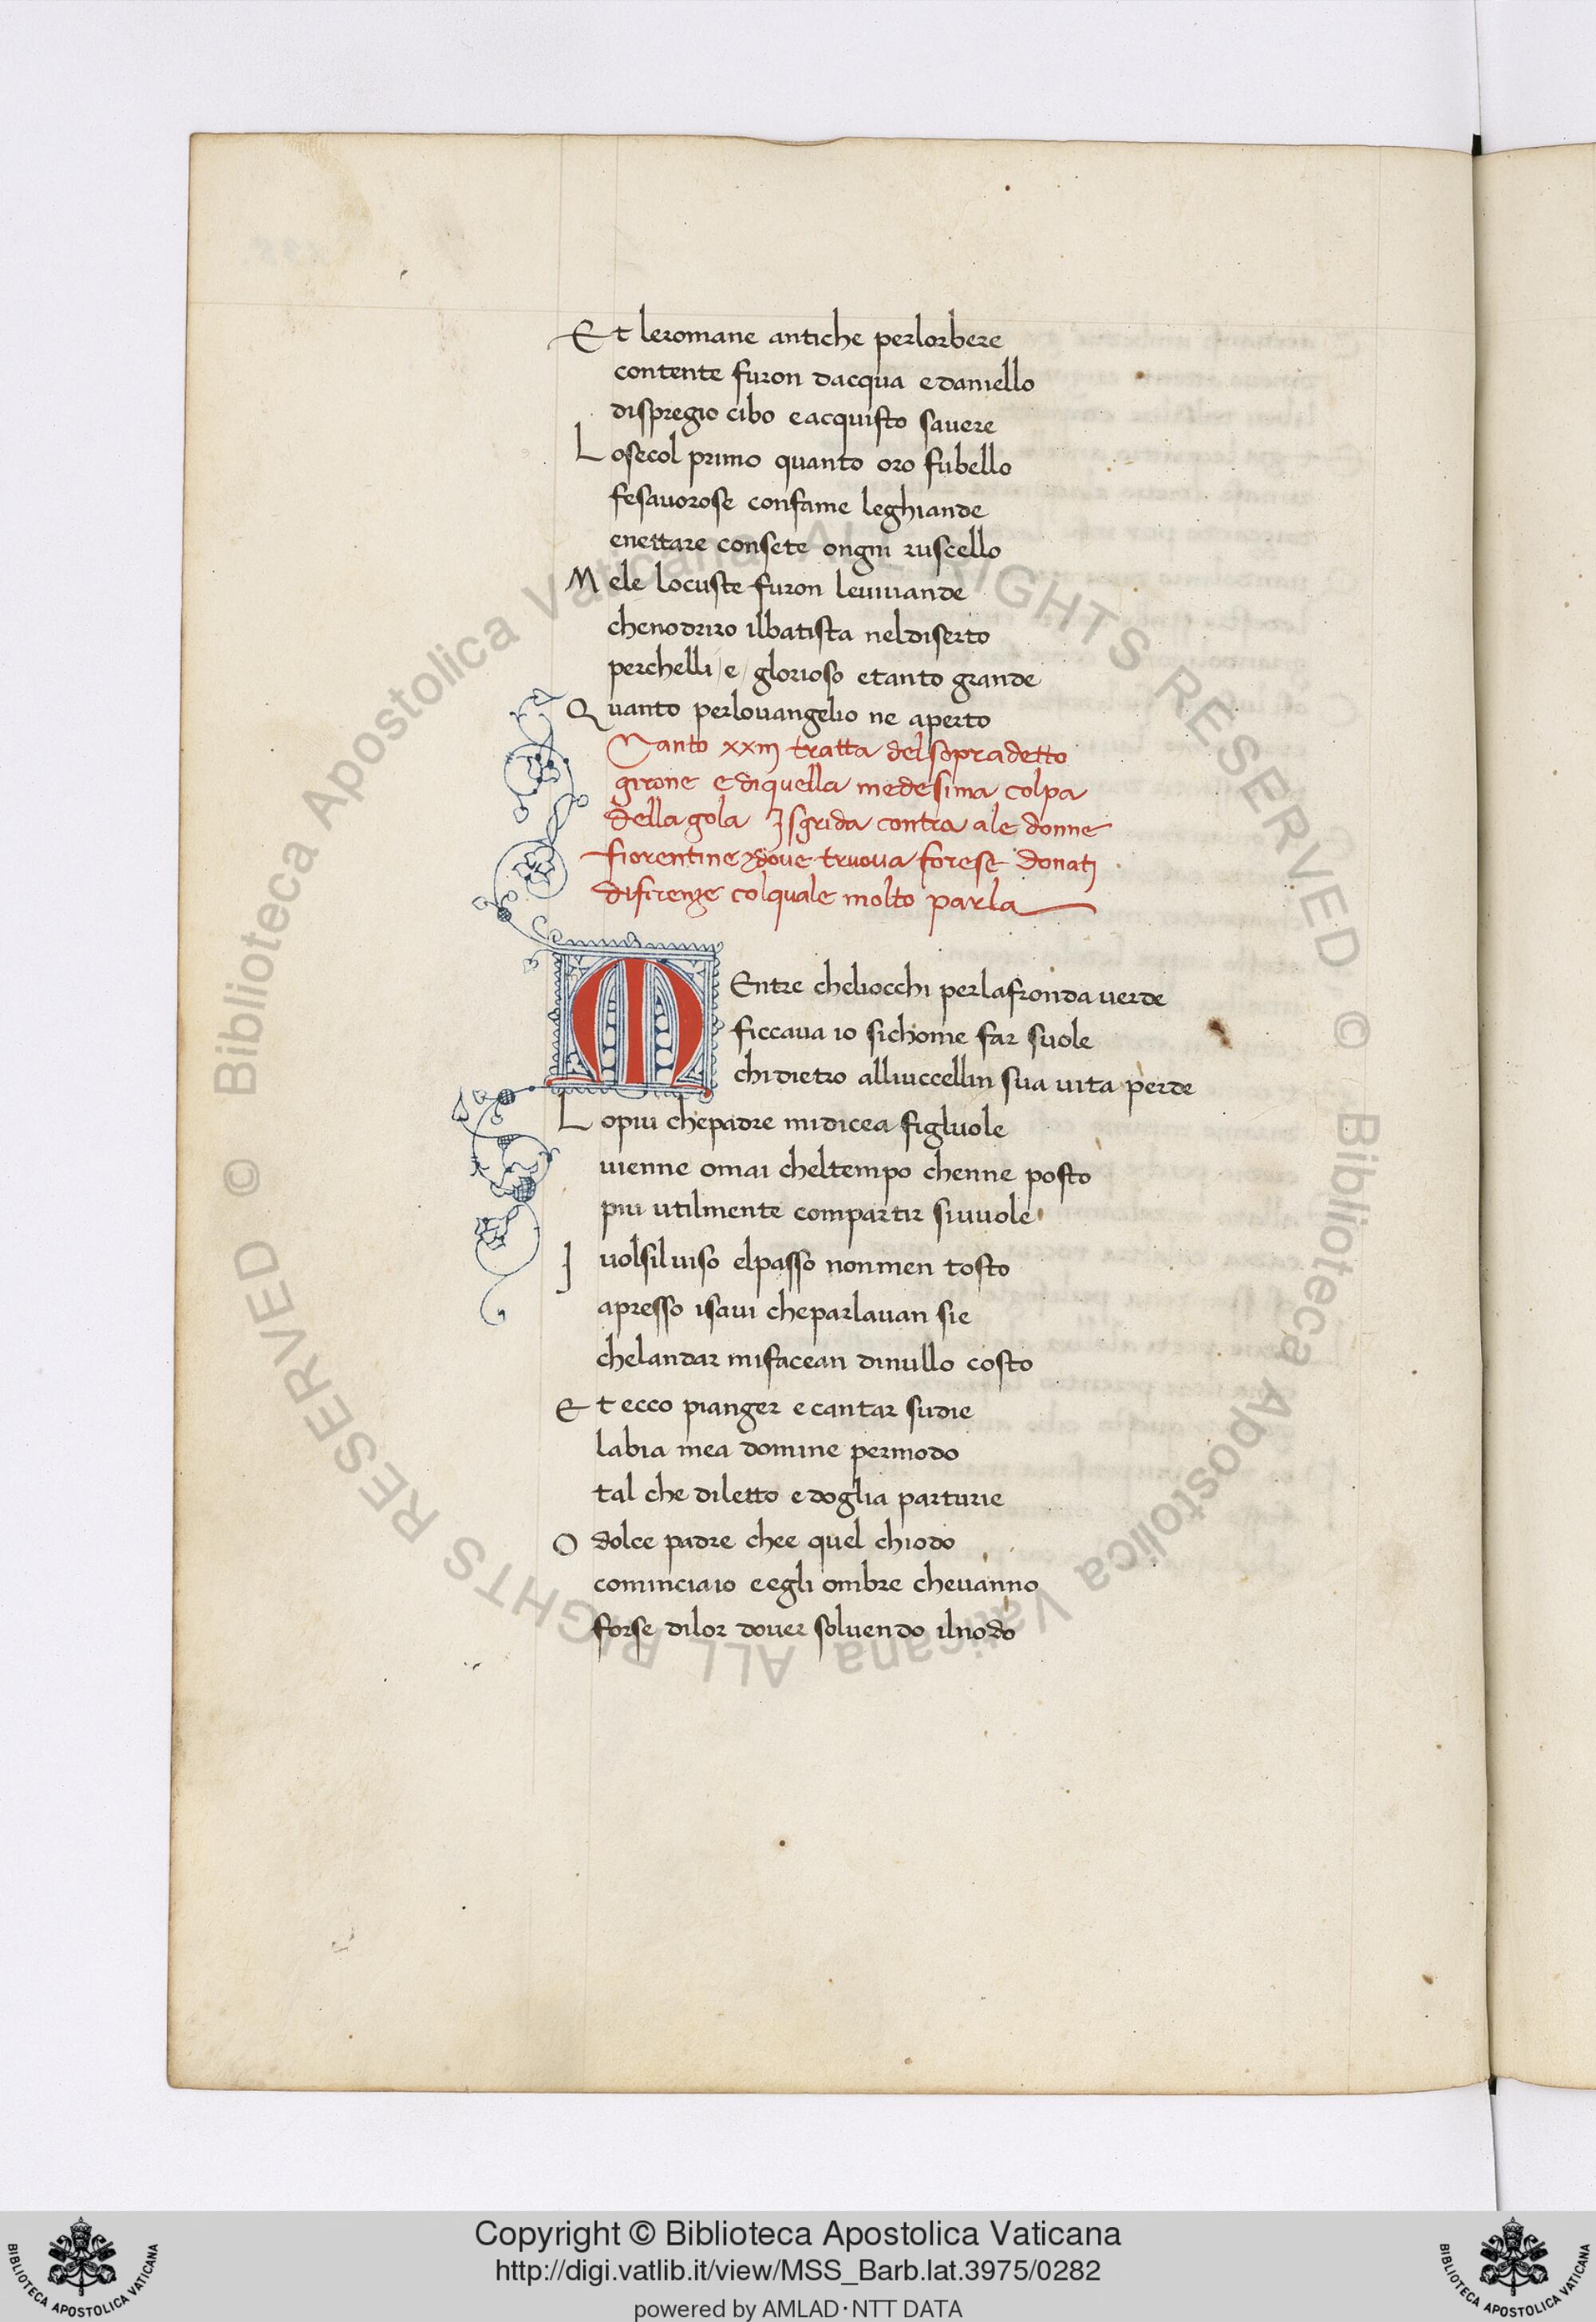 Et leromane antiche perlorbere
contente furon dacqua edaniello
dispregio cibo eacquisto savere
Losecol primo quanto oro fubello
fesavorose confame leghiande
enettare consete ongni ruscello
Mele locuste furon levivande
chenodriro ilbatista neldiserto
perchelli /e/ glorioso etanto grande
Quanto perlovangelio ne aperto
Canto xxiij tratta delsopradetto
girone ediquella medesima colpa
dellagola Isgrida contra ale donne
fiorentine dove truova forese donatj
difirenze colquale molto parla
MEntre cheliocchi perlafronda verde
ficcava io sichome far suole
chidietro alliuccellin sua vita perde
Lopiu chepadre midicea figliuole
vienne omai cheltempo chenne posto
piu utilmente compartir sivuole
I volsilviso elpasso nonmen tosto
apresso isavi cheparlavan sie
chelandar mifacean dinullo costo
Et ecco pianger ecantar sudie
labia mea domine permodo
tal che diletto edoglia parturie
O dolce padre chee quel chiodo
cominciaio eegli ombre chevanno
forse dilor dover solvendo ilnodo
© Biblioteca Apostolica Vaticana ALL RIGHTS RESERVED © Biblioteca Apostolica Vaticana ALL RIGHTS RESERVED
Copyright © Biblioteca Apostolica Vaticana
http://digi.vatlib.it/view/MSS_Barb.lat.3975/0282
powered by AMLAD·NTT DATA
BIBLIOTECA APOSTOLICA VATICANA
BIBLIOTECA APOSTOLICA VATICANA